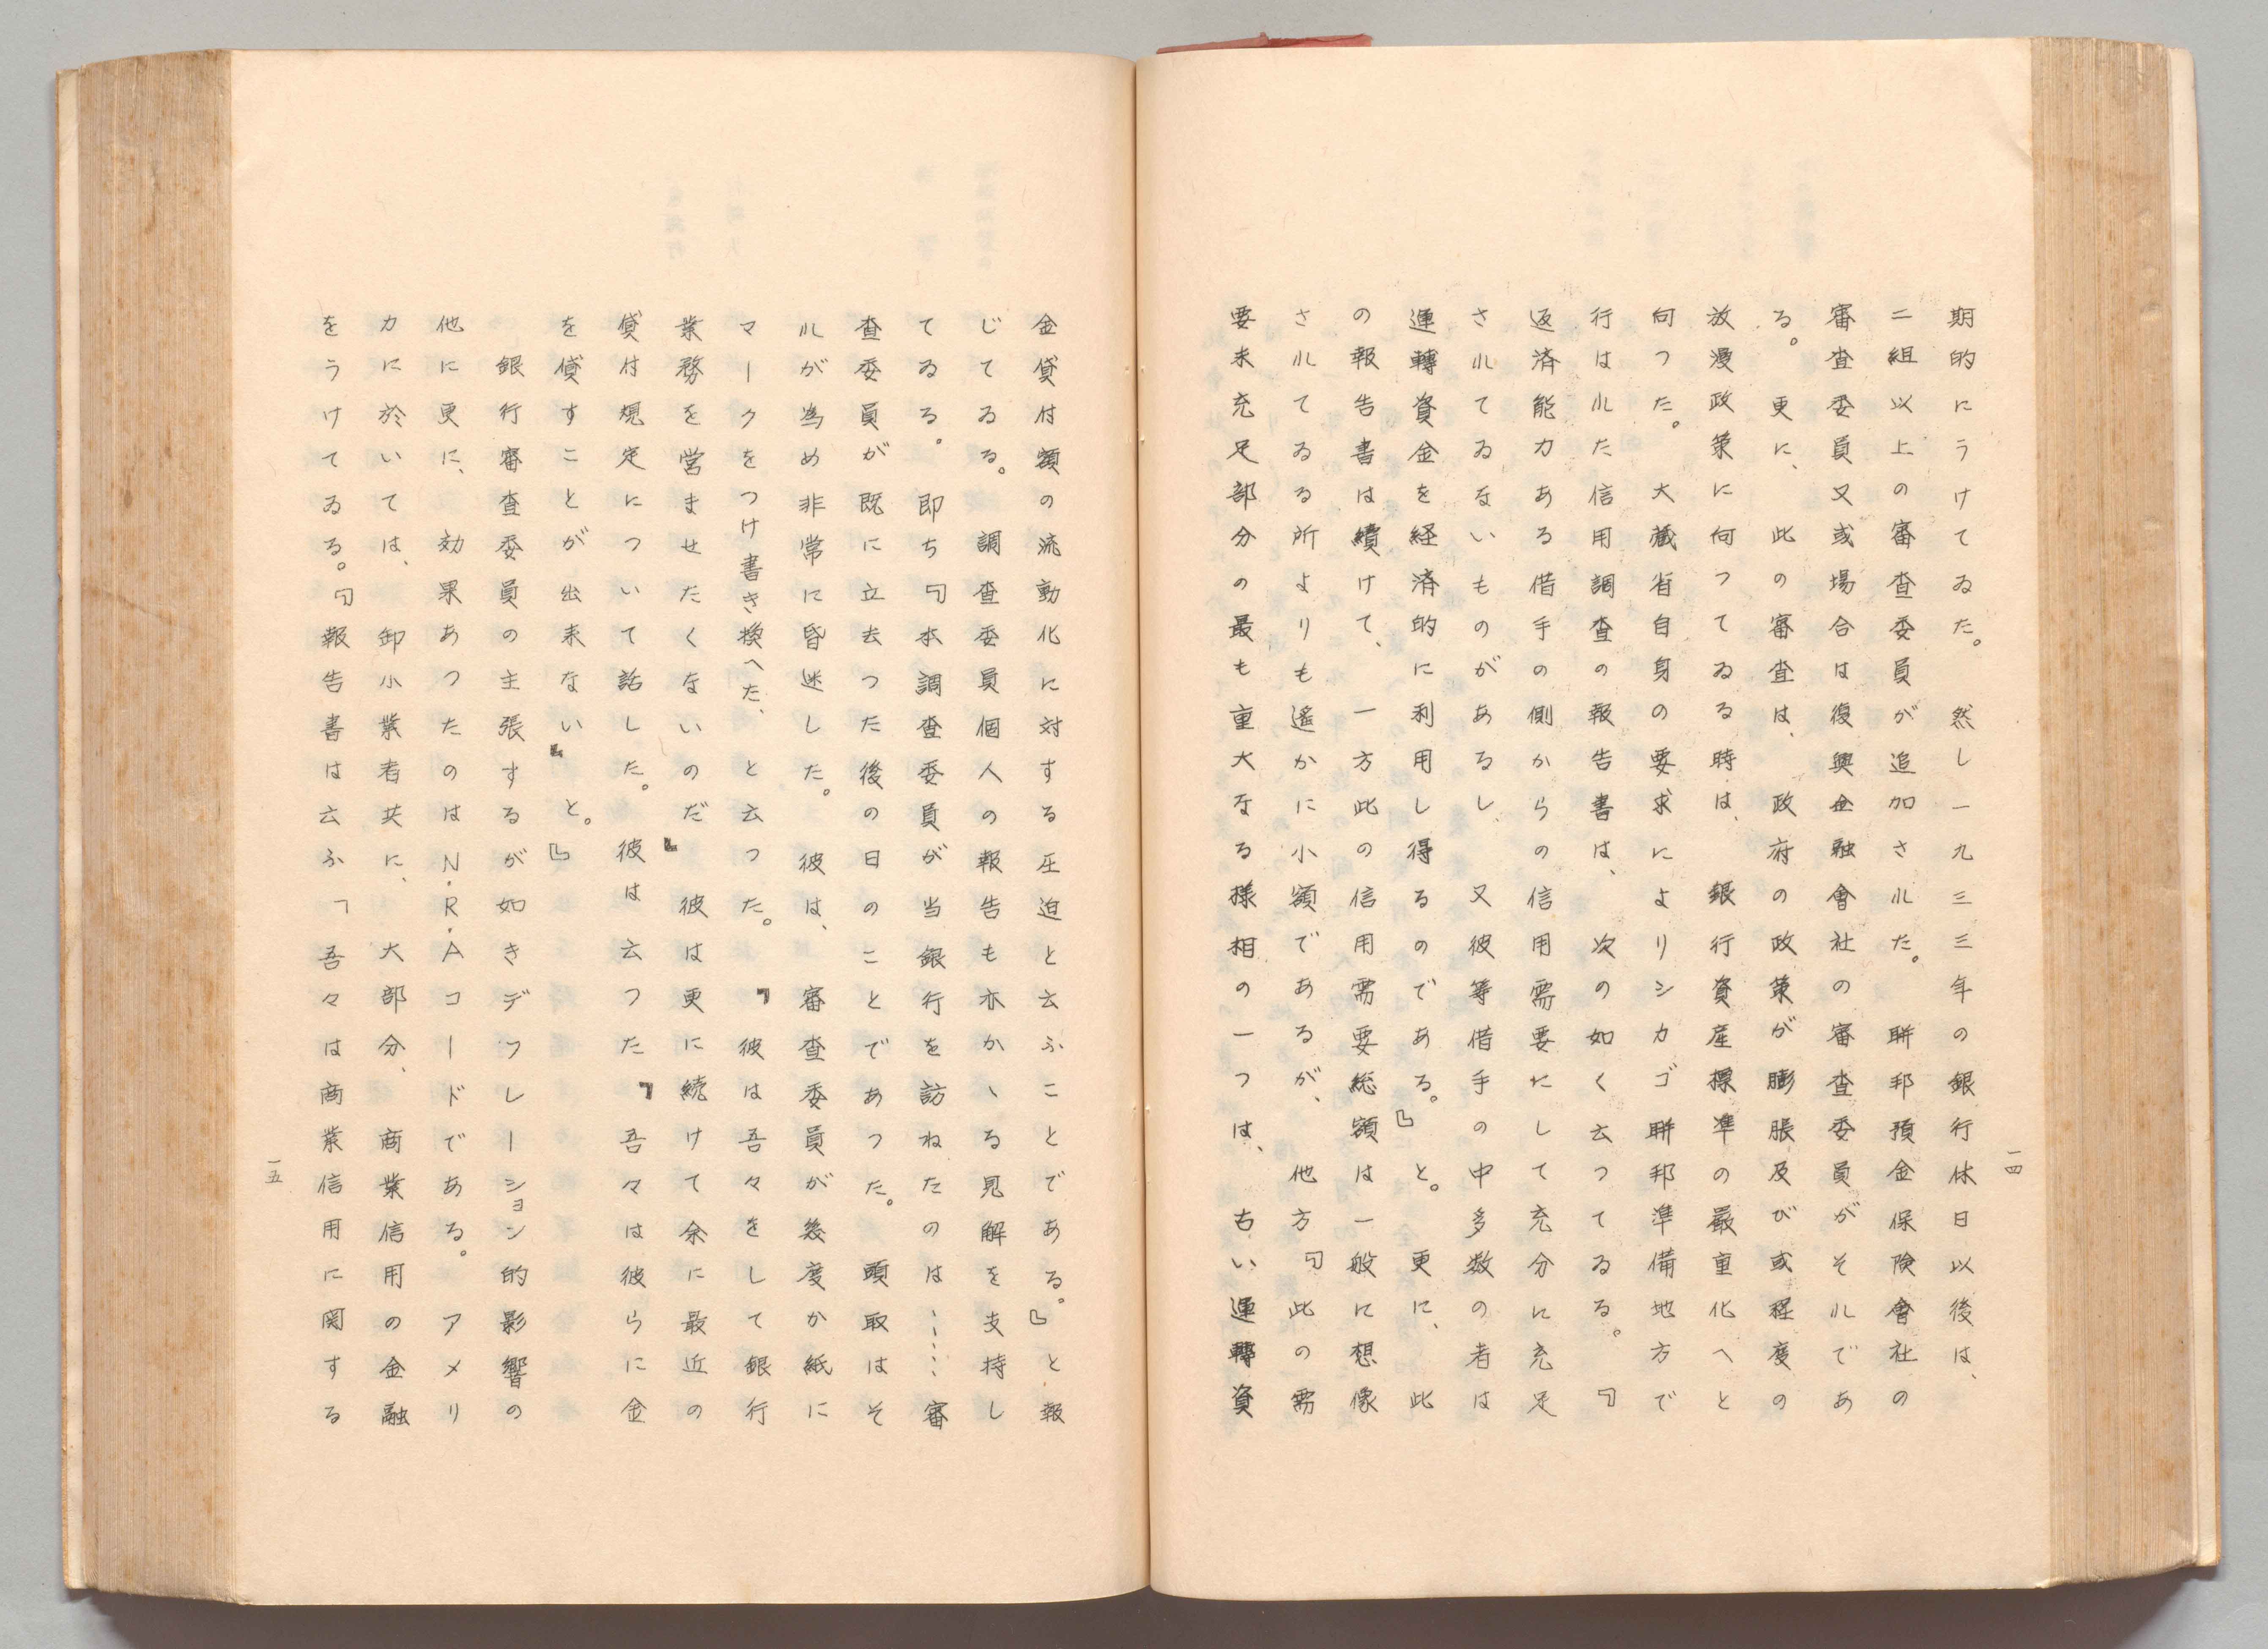 期的にうけてゐた。然し一九三三年の銀行休日以後は、
二組以上の審査委員が追加された。聯邦預金保険會社の
審査委員又或場合は復興金融會社の審査委員がそれであ
る。更に、此の審査は、政府の政策が膨脹及び或程度の
放漫政策に向つてゐる時は、銀行資産標準の嚴重化へと
向つた。大藏省自身の要求によりシカゴ聯邦準備地方で
行はれた信用調査の報告書は、次の如く云つてゐる。『
返済能力ある借手の側からの信用需要にして充分に充足
されてゐないものがあるし、又彼等借手の中多数の者は
運轉資金を経済的に利用し得るのである。』と。更に、此
の報告書は續けて、一方此の信用需要総額は一般に想像
されてゐる所よりも遙かに小額であるが、他方『此の需
要未充足部分の最も重大なる様相の一つは、古い運轉資
一四
金貸付額の流動化に対する圧迫と云ふことである。』と報
じてゐる。調査委員個人の報告も亦かゝる見解を支持し
てゐる。即ち『本調査委員が当銀行を訪ねたのは……審
査委員が既に立去つた後の日のことであつた。頭取はそ
れが為め非常に昏迷した。彼は、審査委員が幾度か紙に
マークをつけ書き換へた、と云つた。『彼は吾々をして銀行
業務を営ませたくないのだ』彼は更に続けて余に最近の
貸付規定について話した。彼は云つた『吾々は彼らに金
を貸すことが出来ない』と。』
銀行審査委員の主張するが如きデフレーション的影響の
他に更に、効果あつたのはN.R.Aコードである。アメリ
カに於いては、卸小業者共に、大部分、商業信用の金融
をうけてゐる。『報告書は云ふ「吾々は商業信用に関する
一五